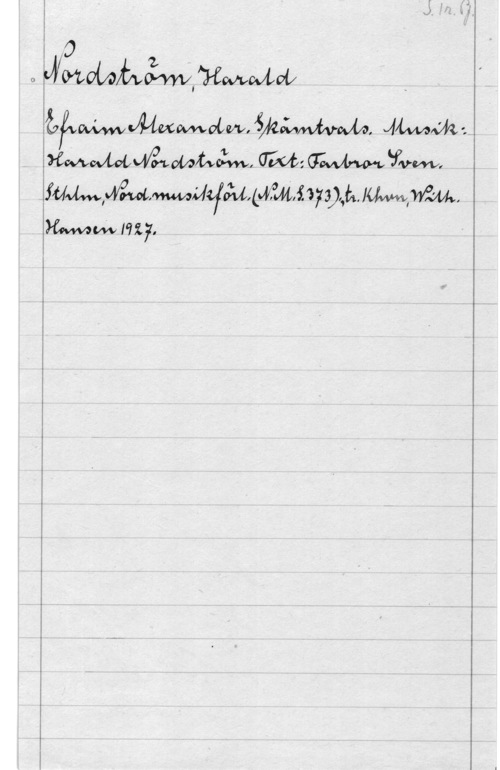 S. 1n. 67.
Nordström, Harald
Efraim Alexander. Skämtvals. Musik:
Harald Nordström. Text: Farbror Sven.
Sthlm, Nord. musikförl. (N.M.S. 373), tr. Khvn, Wilh.
Hansen 1927.